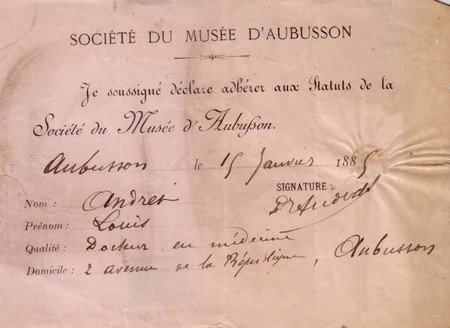 SOCIÉTÉ DU MUSÉE D'AUBUSSON
Je soussigné déclare adhérer aux Statuts de la
Société du Musée d'Aubusson.
Aubusson le 15 Janvier 1885
SIGNATURE :
Nom : Andret
Prénom : Louis
Qualité : Docteur en médecine
Domicile : 2 avenue de la République, Aubusson